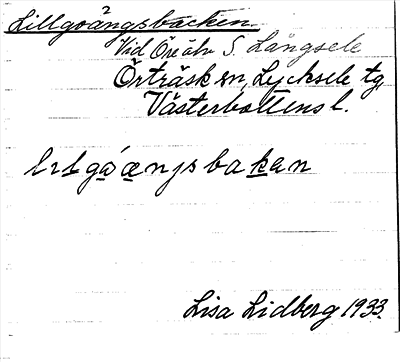 Lillgoängsbacken.
Vid Öre älv S. Långsele
Örträsk sn, Lycksele tg,
Västerbottens l.
Lisa Lidberg 1933.